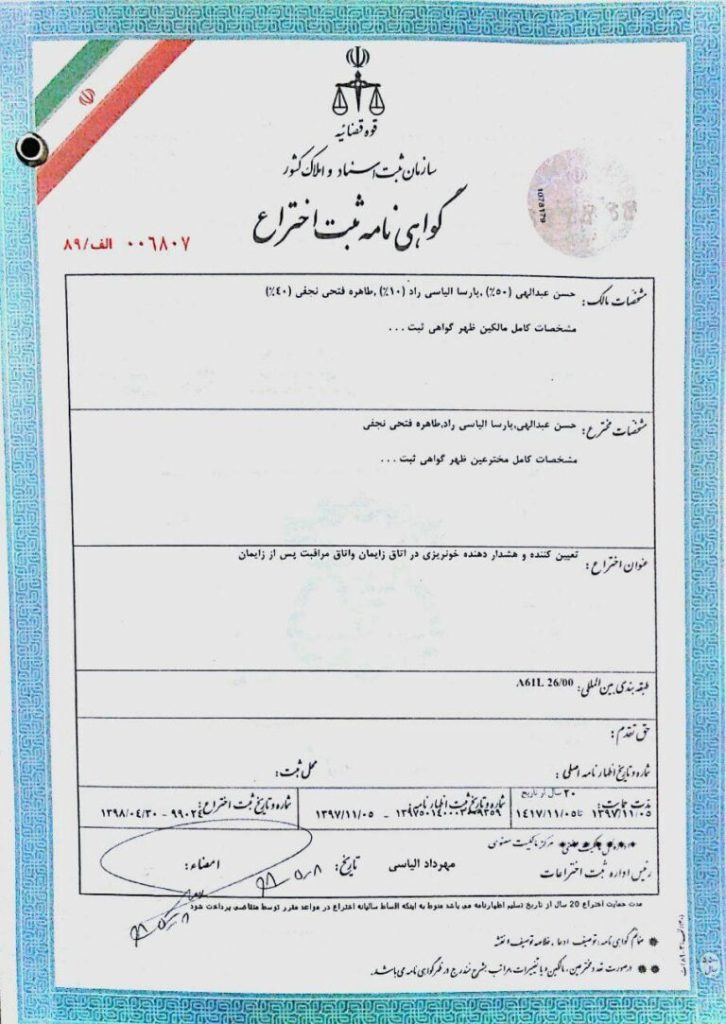 قوه قضائیه
سازمان ثبت اسناد و املاک کشور
گواهی نامه ثبت اختراع
1078179
۰۰۶۸۰۷ الف/۸۹
مشخصات مالک: حسن عبدالهی (۵۰٪) ,پارسا الیاسی راد (۱۰٪) ,طاهره فتحی نجفی (۴۰٪)
مشخصات کامل مالکین ظهر گواهی ثبت ...
مشخصات مخترع: حسن عبدالهی,پارسا الیاسی راد,طاهره فتحی نجفی
مشخصات کامل مخترعین ظهر گواهی ثبت ...
عنوان اختراع: تعیین کننده و هشدار دهنده خونریزی در اتاق زایمان واتاق مراقبت پس از زایمان
طبقه بندی بین المللی: A61L 26/00
حق تقدم:
شماره و تاریخ اظهارنامه اصلی: محل ثبت:
۲۰ سال از تاریخ
مدت حمایت: ۱۳۹۷/۱۱/۰۵ تا ۱۴۱۷/۱۱/۰۵
شماره و تاریخ ثبت اظهارنامه: - ۱۳۹۷/۱۱/۰۵
شماره و تاریخ ثبت اختراع: - ۱۳۹۸/۰۴/۳۰
مرکز مالکیت معنوی
رئیس اداره ثبت اختراعات مهرداد الیاسی تاریخ: امضاء:
مدت حمایت اختراع 20 سال از تاریخ تسلیم اظهارنامه می باشد منوط به اینکه اقساط سالیانه اختراع در مواعد مقرر توسط متقاضی پرداخت شود
* منضم گواهی نامه: توصیف، ادعا، خلاصه توصیف و نقشه
* * درصورت تعدد مخترعین، مالکین و یا تغییرات، مراتب بشرح مندرج در ظهر گواهی نامه می باشد.